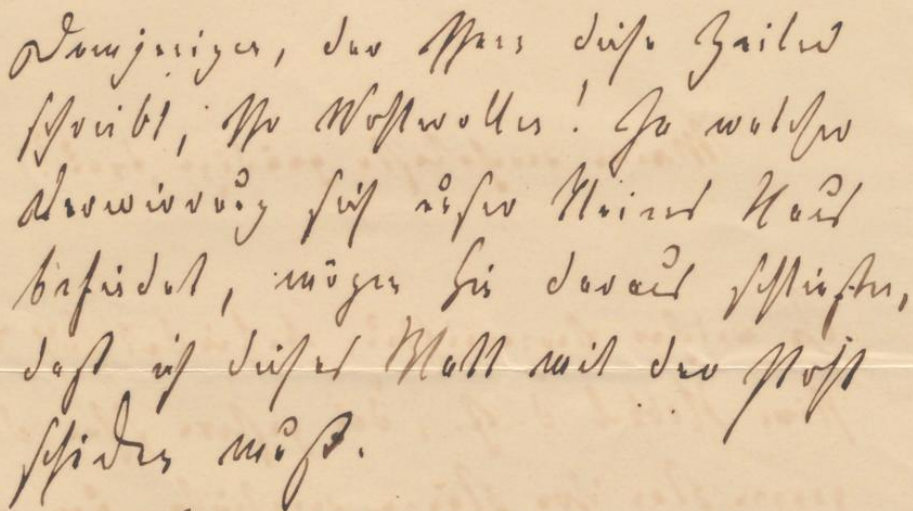 Demjenigen, der Ihnen diese Zeilen
schreibt, Ihr Wohlwollen! In welcher
Verwirrung sich unser kleines Haus
befindet, mögen Sie daraus schließen,
daß ich dieses Blatt mit der Post
schicken muß.